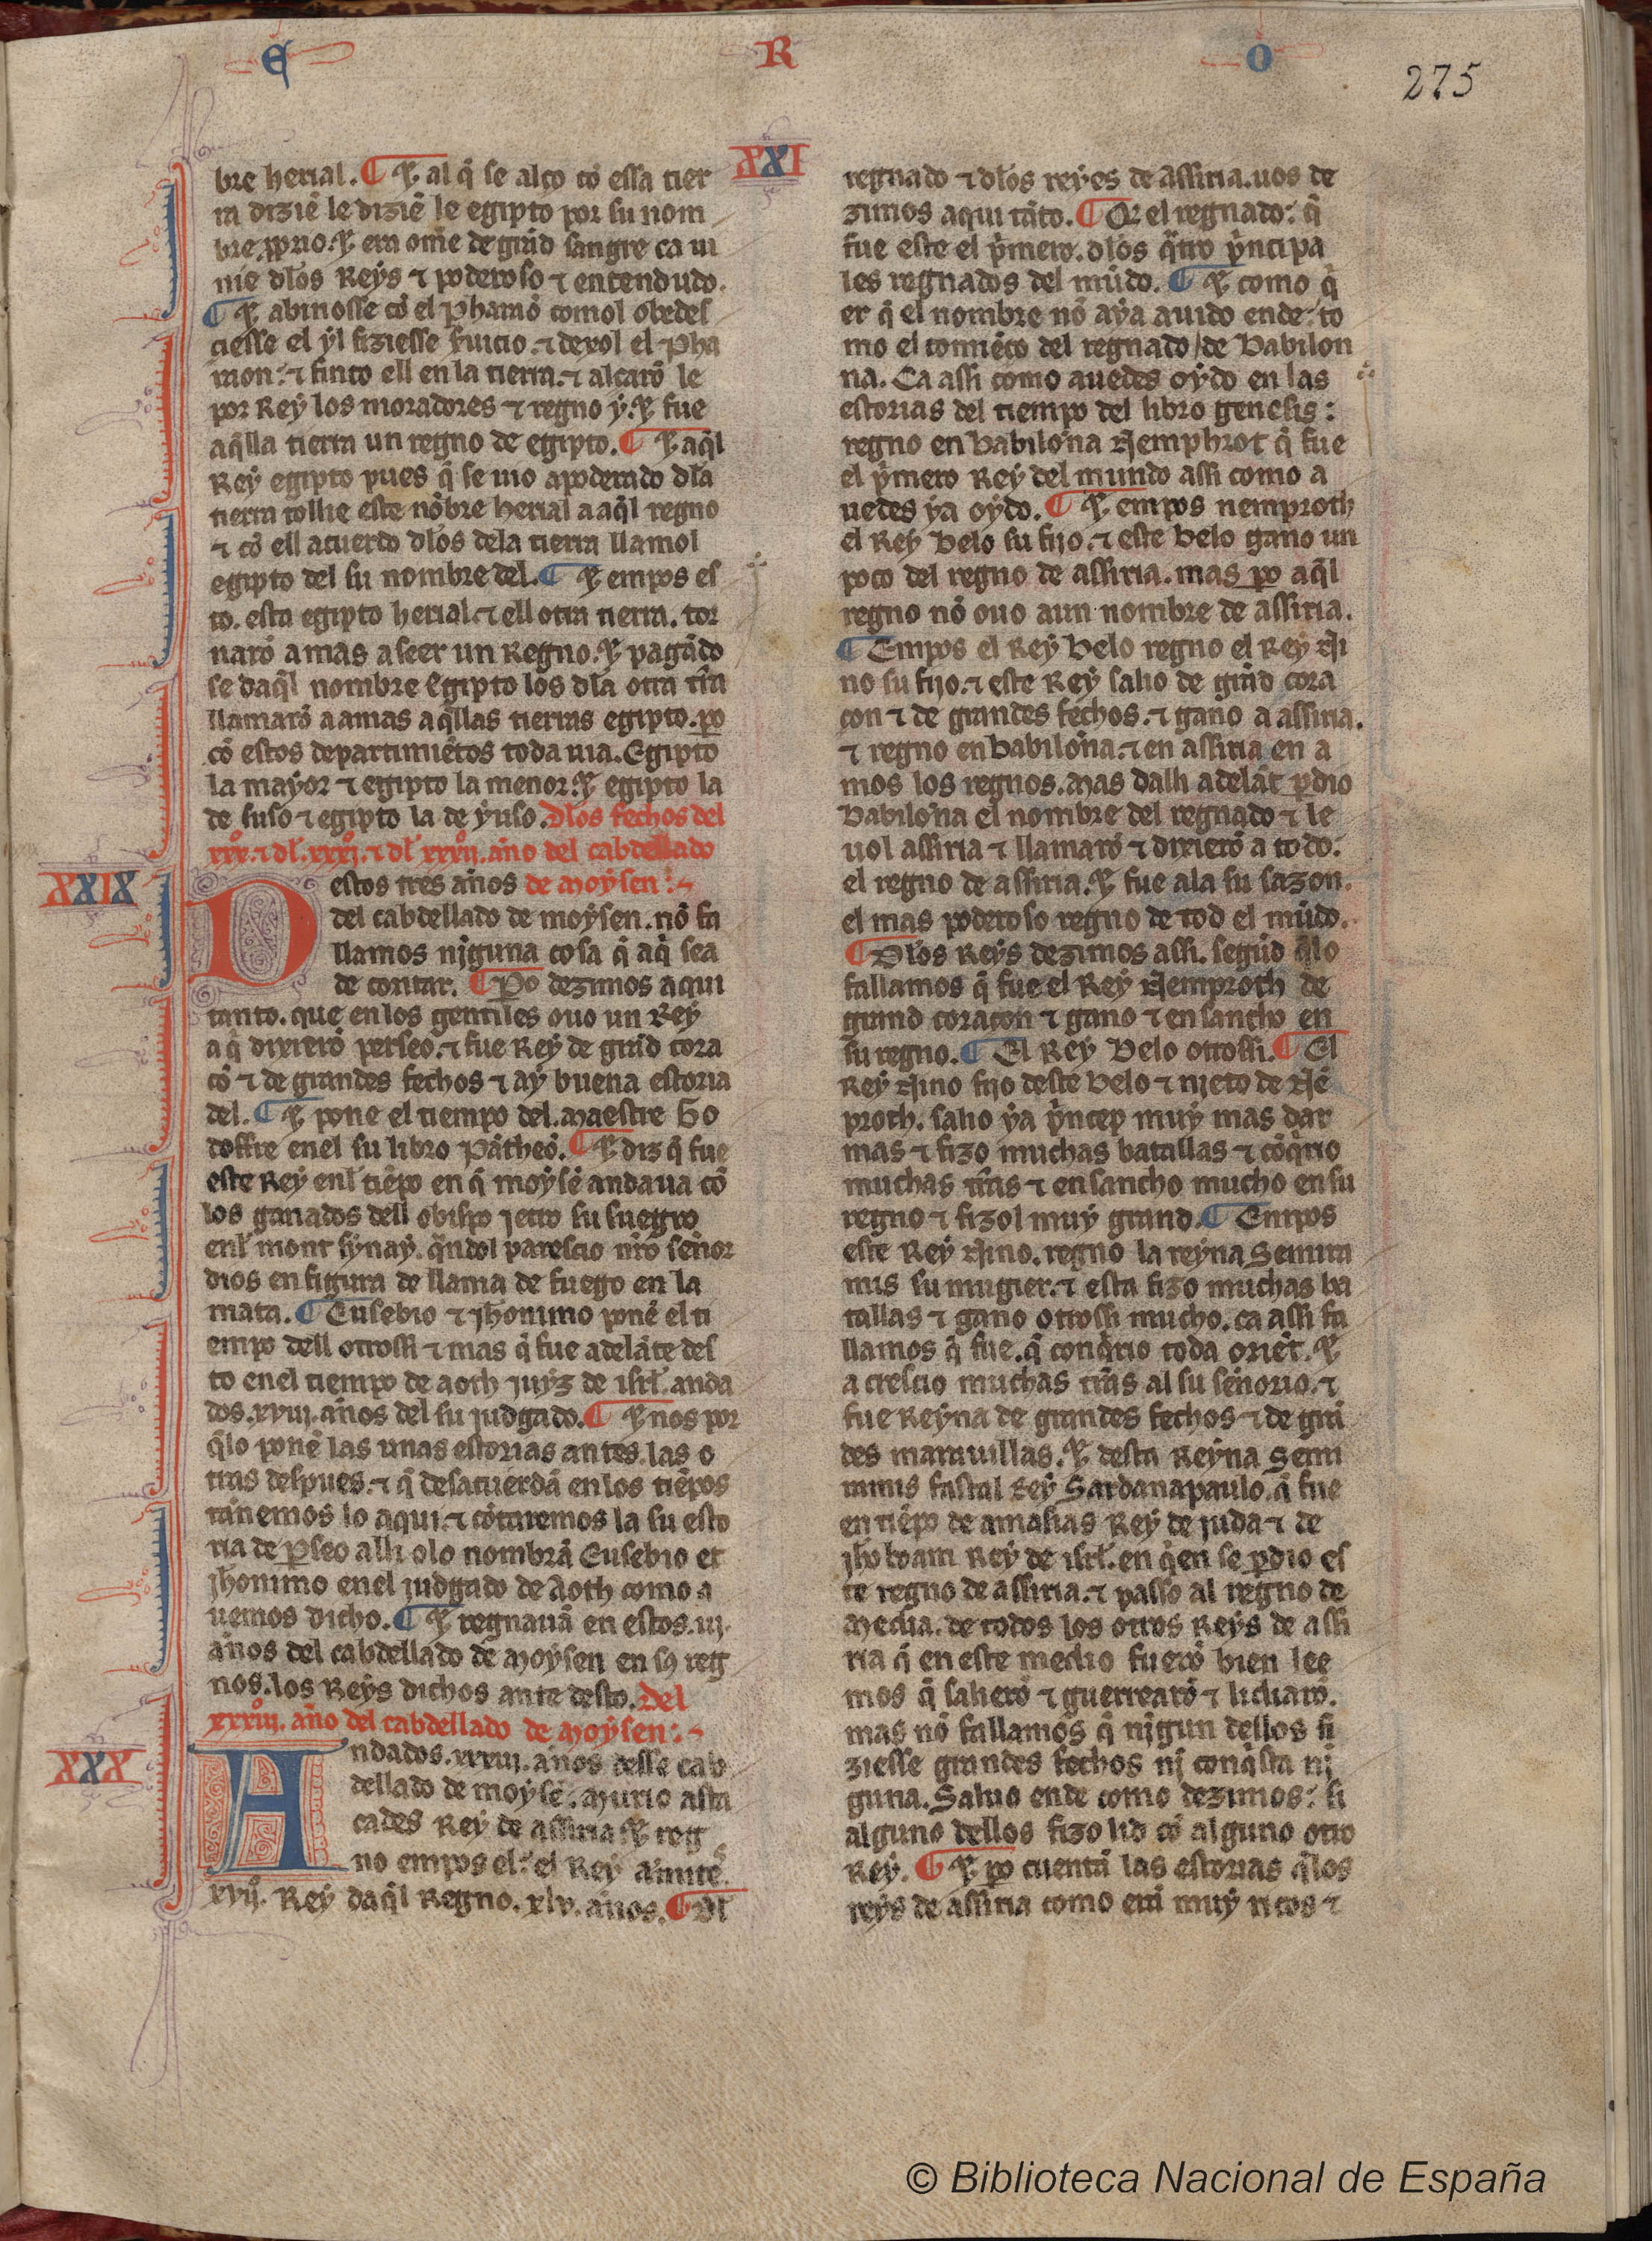 E R O
275
bre herial. ¶ Et al q̃ se alço cõ essa tier
ra diziẽ le diziẽ le egipto por su nom
bre p̱prio. Et era om̃e de grãd sangre ca ui
nie dlos Reẏs ⁊ poderoso ⁊ entendudo.
¶ Et abinosse cõ el Pharaõ comol obedes
ciesse el ẏl fiziesse s̃uicio. ⁊ dexol el Pha
raon: ⁊ finco ell en la tierra. ⁊ alçarõ le
por Reẏ los moradores ⁊ regno ẏ. Et fue
aq̃lla tierra un regno de egipto. ¶ Et aq̃l
Reẏ egipto pues q̃ se uio apoderado dla
tierra tollie este nõbre herial a aq̃l regno
⁊ cõ ell acuerdo dlos dela tierra llamol
egipto del su nombre del. ¶ Et empos es
to. esta egipto herial. ⁊ ell otra tierra. tor
narõ amas a seer un Regno. Et pagãdo
se daq̃l nombre Egipto los dla otra tr̃ra
llamarõ a amas aq̃llas tierras egipto. po
cõ estos departimiẽtos toda uia. Egipto
la maẏor ⁊ egipto la menor. Et egipto la
de suso ⁊ egipto la de ẏuso. Dlos fechos del
xxxº. ⁊ dl. xxxjº. ⁊ dl xxxijº. año del cabdellado
XXIX
Destos tres años de Moẏsen:
del cabdellado de moẏsen. nõ fa
llamos njguna cosa q̃ aq̃ sea
de contar. ¶ Po dezimos aqui
tanto. que en los gentiles ouo un Reẏ
a q̃ dixierõ perseo. ⁊ fue Reẏ de grãd cora
çõ ⁊ de grandes fechos ⁊ aẏ buena estoria
del. ¶ Et pone el tiempo del. Maestre Go
doffre en el su libro Pãtheõ. ¶ Et diz q̃ fue
este Reẏ enl tiẽpo en q̃ moẏsẽ andaua cõ
los ganados dell obispo jetro su suegro
enl mont sẏnaẏ. q̃ndol paresçio nr̃o señor
dios en figura de llama de fuego en la
mata. ¶ Eusebio ⁊ jhonimo ponẽ el ti
empo dell otrossi ⁊ mas q̃ fue adelãte des
to en el tiempo de aoth juẏz de isrl. anda
dos. xviij. años del su judgado. ¶ Et nos por
q̃lo ponẽ las unas estorias antes. las o
tras despues. ⁊ q̃ desacuerdã en los tiẽpos
tãnemos lo aqui. ⁊ cõtaremos la su esto
ria de p̱seo alli o lo nombrã Eusebio et
jhonimo en el judgado de Aoth como a
uemos dicho. ¶ Et regnauã en estos. iij.
años del cabdellado de Moẏsen en sꝯ reg
nos. los Reẏs dichos ante desto. Del
xxxiijº. año del cabdellado de Moẏsen:
XXX
Andados. xxxiij. años desse cab
dellado de moẏsẽ. Murio asta
cades Reẏ de assiria. Et reg
no empos el: el Reẏ amintẽ
xvijº. Reẏ daq̃l Regno. xlv. años. ¶ Dl
XXXI
regnado ⁊ dlos reẏes de Assiria. uos de
zimos aqui tãto. ¶ Or el regnado: q̃
fue este el p̃mero. dlos q̃tro p̃ncipa
les regnados del mũdo. ¶ Et como q̃
er q̃ el nombre nõ aẏa auido ende: to
mo el comiẽço del regnado de Babilon
na. Ca assi como auedes oẏdo en las
estorias del tiempo del libro genesis:
regno en babiloña Nemphrot q̃ fue
el p̃mero Reẏ del mundo assi como a
uedes ẏa oẏdo. ¶ Et empos nemproth
el Reẏ Belo su fijo. ⁊ este belo gano un
poco del regno de assiria. mas po aq̃l
regno nõ ouo aun nombre de assiria.
¶ Empos el Reẏ Belo regno el Reẏ Ni
no su fijo. ⁊ este Reẏ salio de grãd cora
çon ⁊ de grandes fechos. ⁊ gano a assiria.
⁊ regno en babiloña. ⁊ en assiria en a
mos los regnos. Mas dalli adelãt p̱dio
babiloña el nombre del regnado ⁊ le
uol assiria ⁊ llamarõ ⁊ dixierõ a todo:
el regno de assiria. Et fue a la su sazon.
el mas poderoso regno de tod el mũdo.
¶ Dlos Reẏs dezimos assi. segũd q̃lo
fallamos q̃ fue el Reẏ Nemproth de
grand coraçon ⁊ gano ⁊ ensancho en
su regno. ¶ El Reẏ Belo otrossi. ¶ El
Reẏ Nino fijo deste belo ⁊ njeto de Nẽ
proth. salio ẏa p̃ncep muẏ mas dar
mas ⁊ fizo muchas batallas ⁊ cõq̃rio
muchas tr̃ras ⁊ ensancho mucho en su
regno ⁊ fizol muẏ grand. ¶ Empos
este Reẏ Nino. regno la reẏna Semira
mis su mugier. ⁊ esta fizo muchas ba
tallas ⁊ gano otrossi mucho. ca assi fa
llamos q̃ fue. q̃ conq̃rio toda oriẽt. Et
acrescio muchas tr̃ras al su señorio. ⁊
fue Reẏna de grandes fechos ⁊ de grã
des marauillas. Et desta Reẏna Semi
ramis fastal Reẏ Sardanapaulo. q̃ fue
en tiẽpo de amasias Reẏ de juda ⁊ de
jhoboam Reẏ de isrl. en q̃en se p̱dio es
te regno de assiria. ⁊ passo al regno de
Media. de todos los otros Reẏs de assi
ria q̃ en este medio fuerõ bien lee
mos q̃ salierõ ⁊ guerrearõ ⁊ lidiarõ.
mas nõ fallamos q̃ njgun dellos fi
ziesse grandes fechos nj conq̃sta nj
guna. Saluo ende como dezimos: si
alguno dellos fizo lid cõ alguno otro
Reẏ. ¶ Et po cuentã las estorias q̃los
reẏs de assiria como erã muẏ ricos ⁊
© Biblioteca Nacional de España